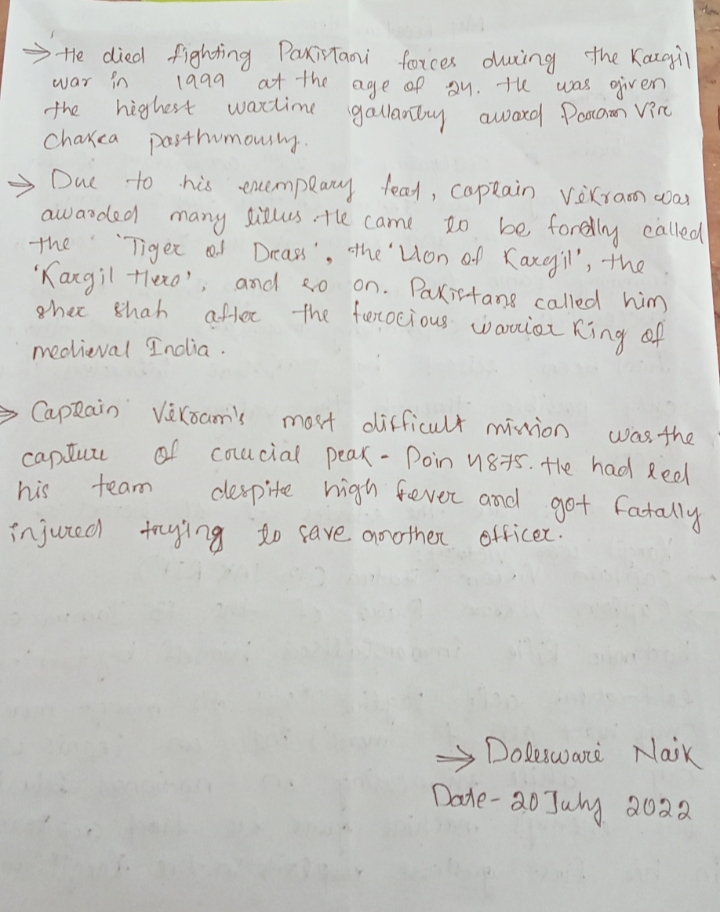 ⇒ He died fighting Pakistani forces during the Kargil
war in 1999 at the age of 24. He was given
the highest wartime gallantry award Param Vir
Chakra posthumously.
⇒ Due to his exemplary feat, Captain Vikram was
awarded many titles. He came to be fondly called
the 'Tiger of Drass', the 'Lion of Kargil', the
'Kargil Hero', and so on. Pakistans called him
Sher Shah after the ferocious warrior King of
medieval India.
⇒ Captain Vikram's most difficult mission was the
capture of crucial peak - Poin 4875. He had led
his team despite high fever and got fatally
injured trying to save another officer.
⇒ Doleswari Naik
Date - 20 July 2022